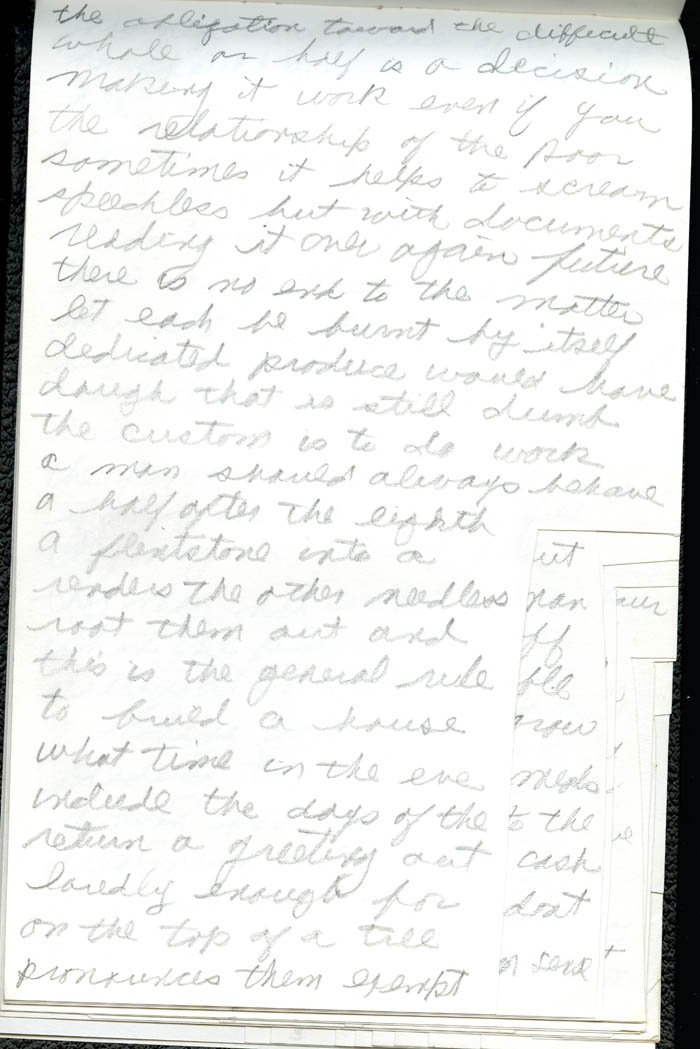 the obligation toward the difficult
whole or half is a decision
making it work even if you
the relationship of the poor
sometimes it helps to scream
speechless but with documents
reading it over again future
there is no end to the matter
let each be burnt by itself
dedicated produce would have
dough that is still dumb
the custom is to do work
a man should always behave
a half after the eighth
a flintstone into a ut
renders the other needless man our
root them out and off
this is the general rule ble
to build a house now
what time in the eve meds
include the days of the to the
return a greeting out cash
loudly enough for dont
on the top of a tree
pronounces them exempt